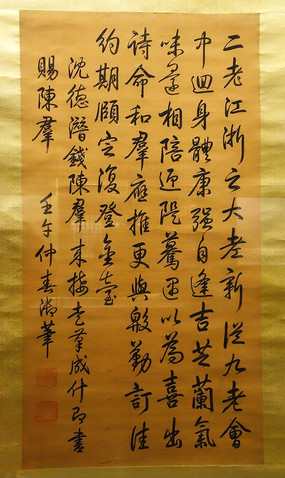 二老江浙之大老新從九老會
中迴身體康强自逢吉芝蘭氣
味還相陪迎隄驀遇以為喜出
詩命和羣應推更與殷勤訂佳
約期頤定復登金臺
沈德潛錢陳羣來接走筆成什即書
賜陳羣
壬午仲春御筆